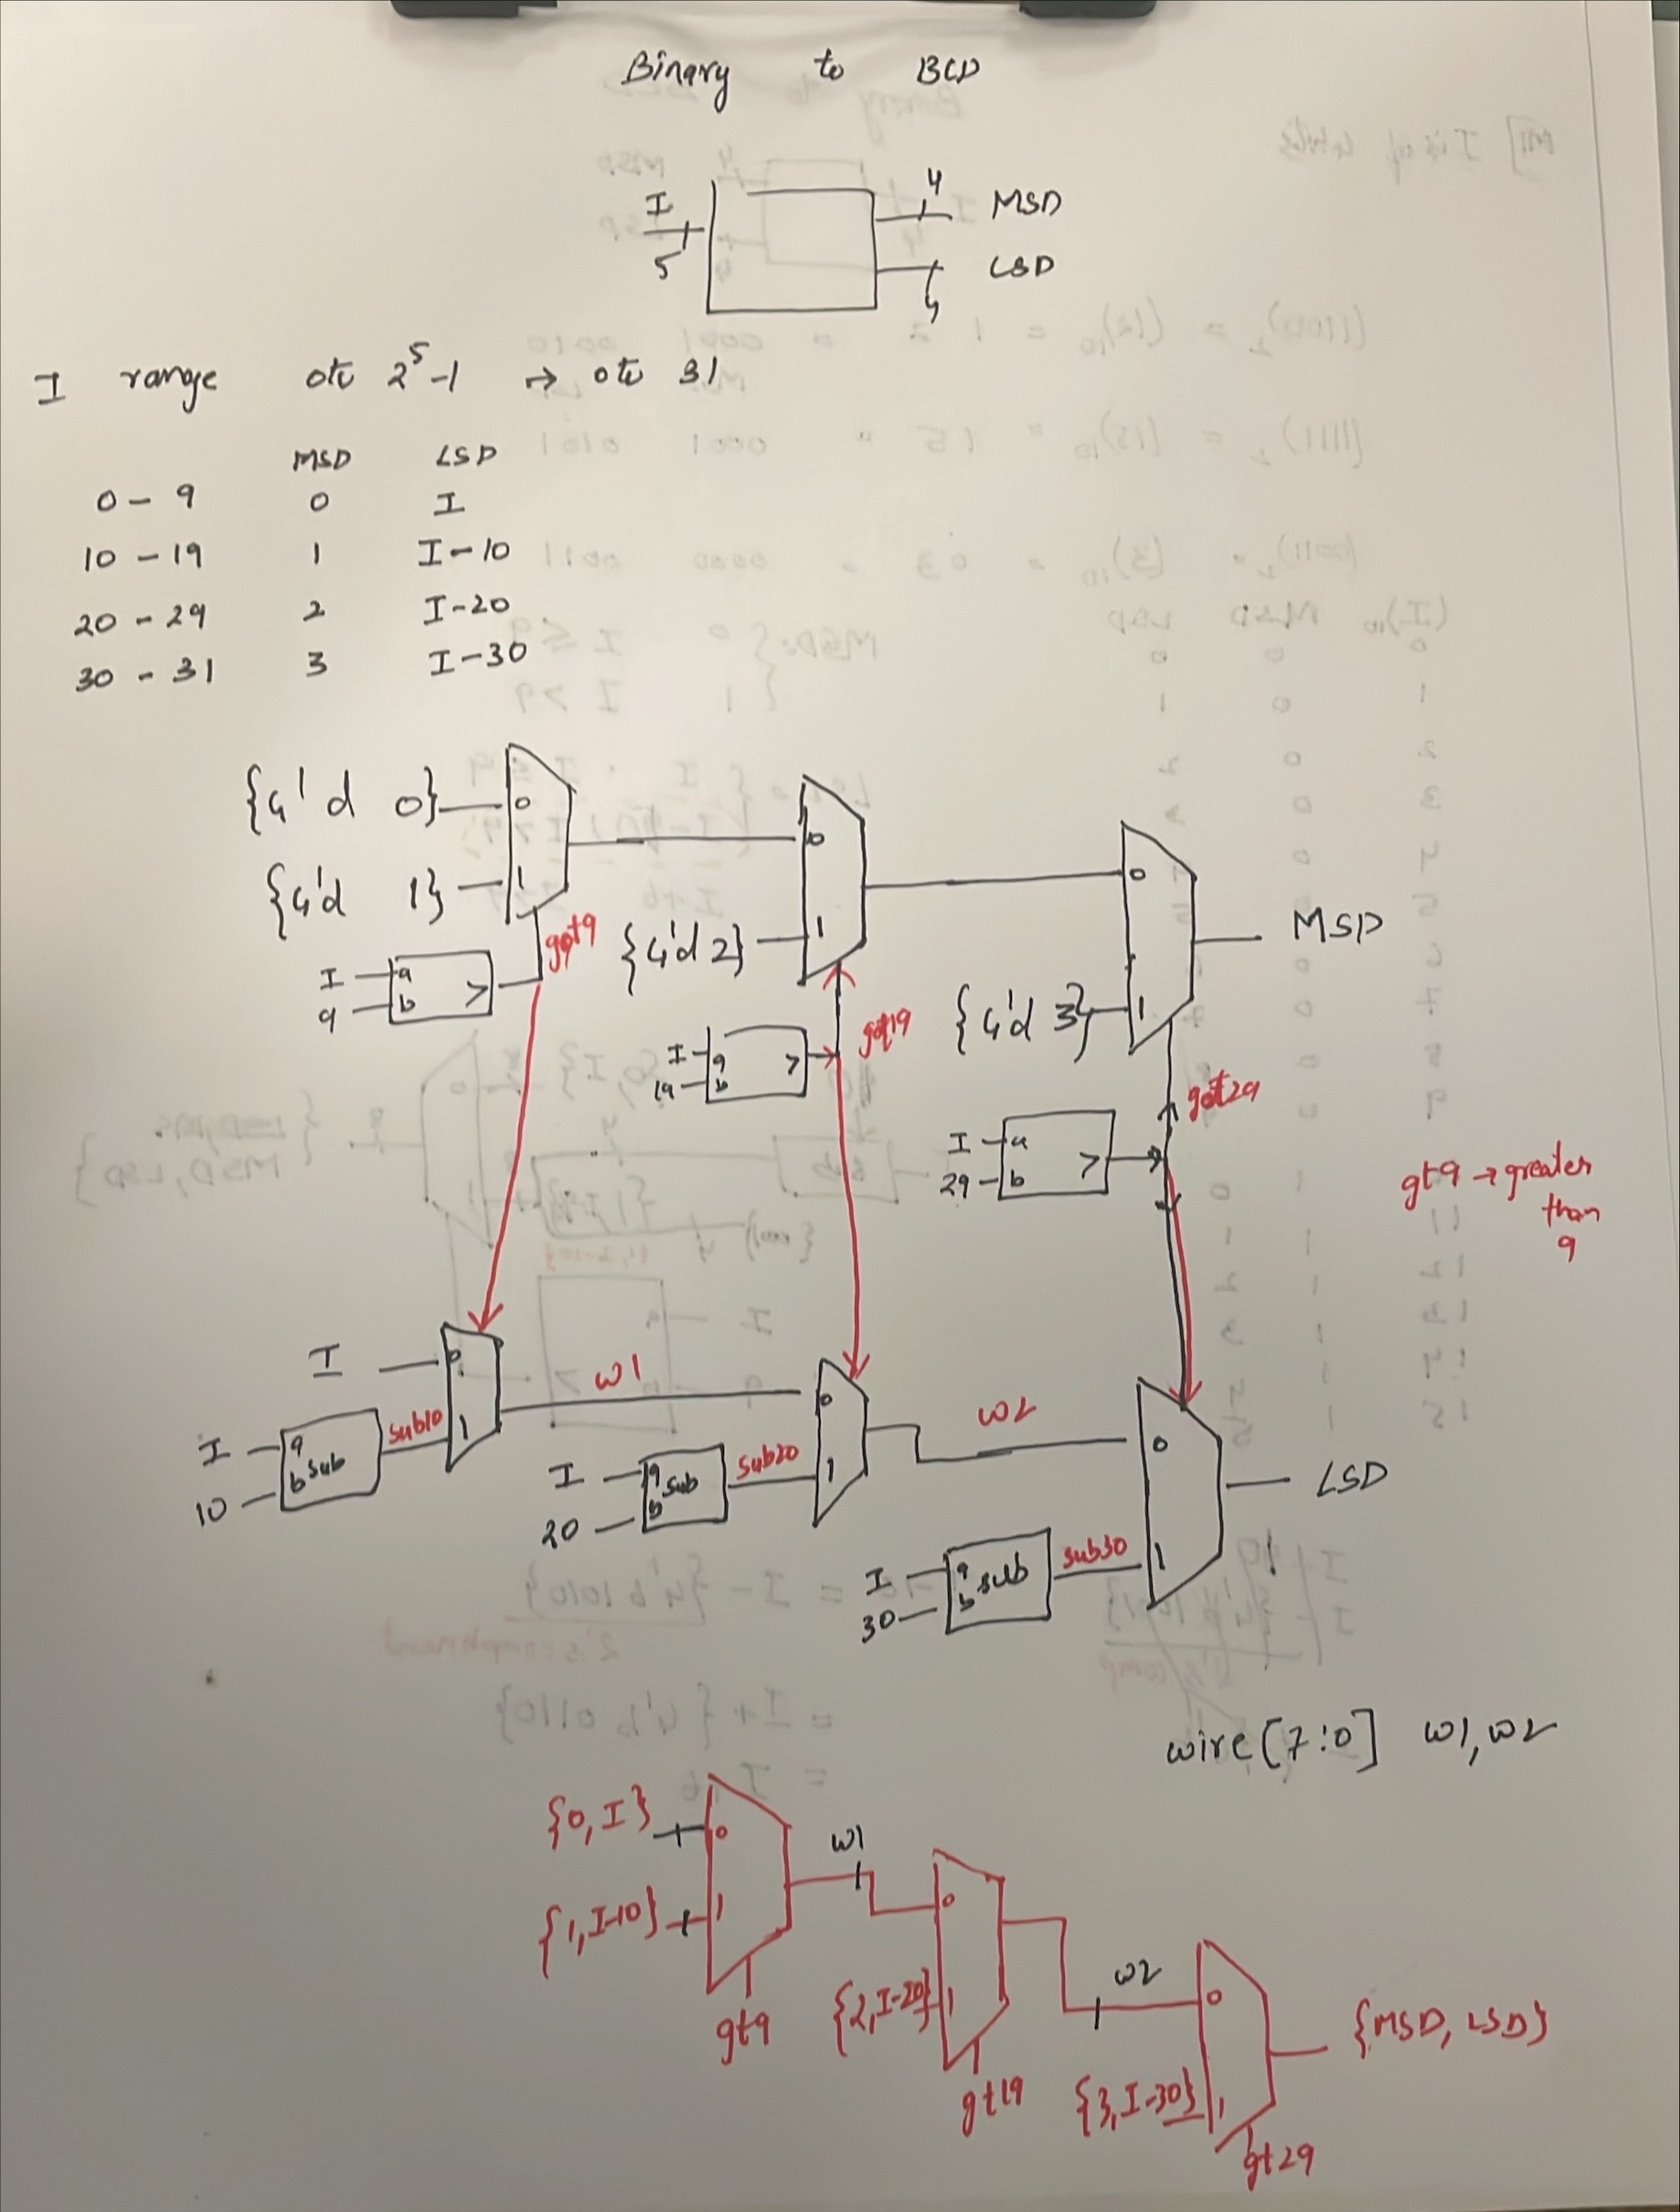 Binary to BCD
I
5
4 MSD
4 LSD
I range 0to 2^5-1 → 0to 31
MSD LSD
0 - 9 0 I
10 - 19 1 I-10
20 - 29 2 I-20
30 - 31 3 I-30
{4'd 0} 0
{4'd 1} 1
I a
9 b >
gt9
0
{4'd 2} 1
I a
19 b >
gt19
0
{4'd 3} 1
MSD
I a
29 b >
gt29
gt9 → greater
than
9
I 0
I a
10 b sub
sub10 1
w1 0
I a
20 b sub
sub20 1
w2 0
I a
30 b sub
sub30 1
LSD
wire [7:0] w1, w2
{0, I} 0
{1, I-10} 1
gt9
w1 0
{2, I-20} 1
gt19
w2 0
{3, I-30} 1
gt29
{MSD, LSD}